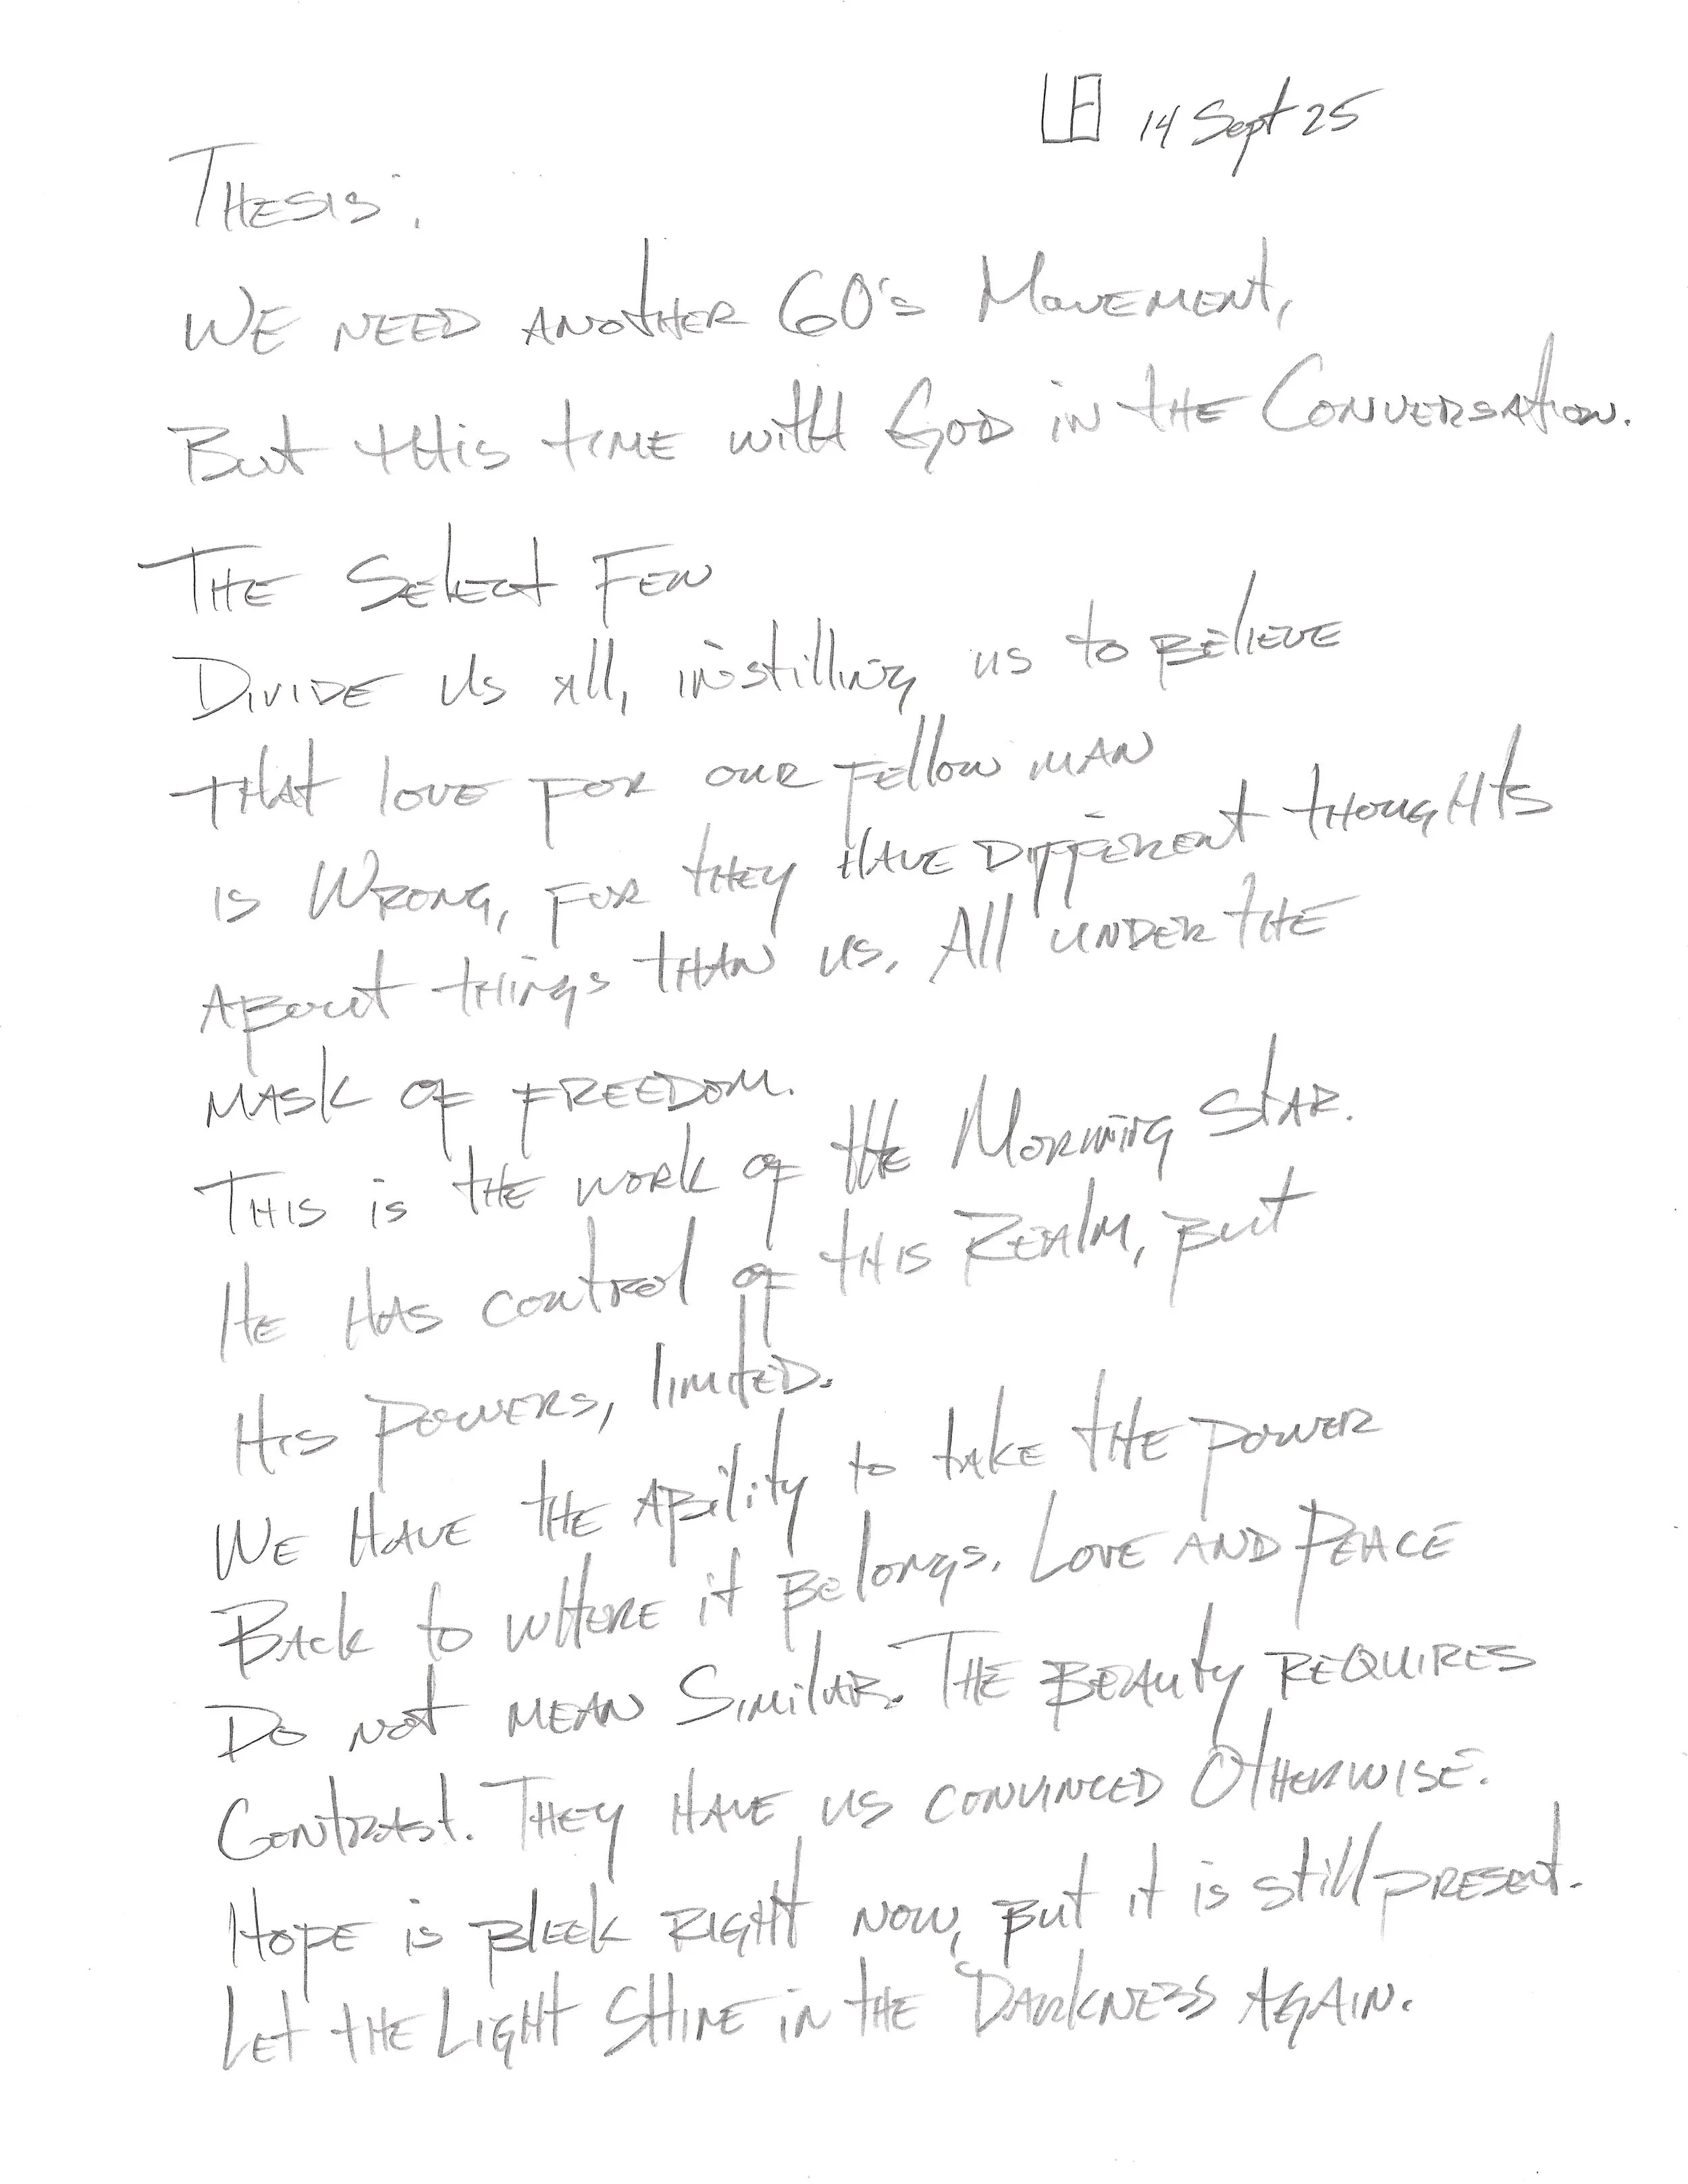 LE 14 Sept 25
Thesis:
We need another 60's Movement,
But this time with God in the Conversation.
The Select Few
Divide us all, instilling us to believe
that love for our fellow man
is wrong, for they have different thoughts
about things than us. All under the
mask of freedom.
This is the work of the Morning Star.
He has control of this Realm, but
His powers, limited.
We have the ability to take the power
Back to where it belongs. Love and Peace
Do not mean Similar. The beauty requires
Contrast. They have us convinced otherwise.
Hope is bleek right now, but it is still present.
Let the Light Shine in the Darkness again.